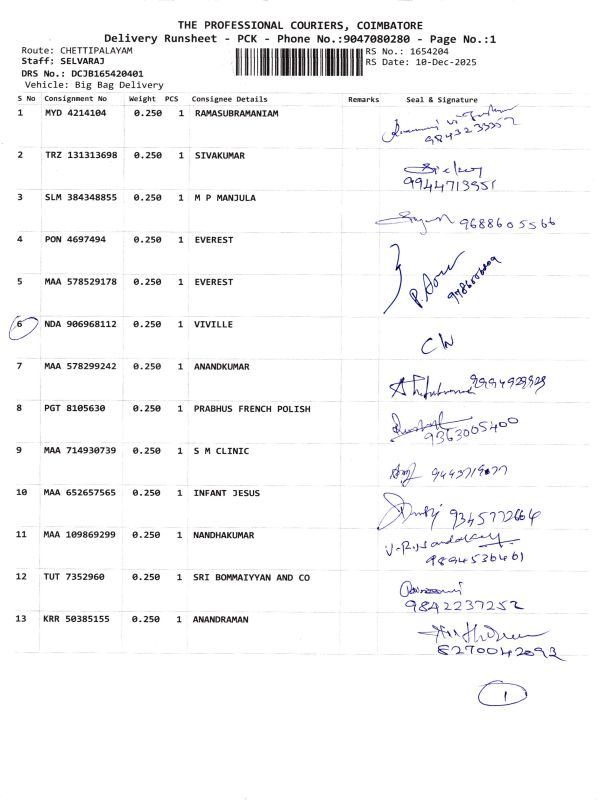 THE PROFESSIONAL COURIERS, COIMBATORE
Delivery Runsheet - PCK - Phone No.:9047080280 - Page No.:1
Route: CHETTIPALAYAM RS No.: 1654204
Staff: SELVARAJ RS Date: 10-Dec-2025
DRS No.: DCJB165420401
Vehicle: Big Bag Delivery
S No Consignment No Weight PCS Consignee Details Remarks Seal & Signature
1 MYD 4214104 0.250 1 RAMASUBRAMANIAM
9843233357
2 TRZ 131313698 0.250 1 SIVAKUMAR
9944713951
3 SLM 384348855 0.250 1 M P MANJULA
9688605566
4 PON 4697494 0.250 1 EVEREST
5 MAA 578529178 0.250 1 EVEREST
6 NDA 906968112 0.250 1 VIVILLE
7 MAA 578299242 0.250 1 ANANDKUMAR
8 PGT 8105630 0.250 1 PRABHUS FRENCH POLISH
9363005400
9 MAA 714930739 0.250 1 S M CLINIC
10 MAA 652657565 0.250 1 INFANT JESUS
9345772664
11 MAA 109869299 0.250 1 NANDHAKUMAR
9894536461
12 TUT 7352960 0.250 1 SRI BOMMAIYYAN AND CO
9842237252
13 KRR 50385155 0.250 1 ANANDRAMAN
8270042093
1